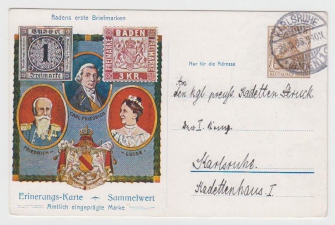 Badens erste Briefmarken
Baden
1
Freimarke
BADEN
FREIMARKE
3 KR.
CARL FRIEDRICH
FRIEDRICH
LUISE
Erinerungs-Karte Sammelwert
Amtlich eingeprägte Marke
KARLSRUHE
Nur für die Adresse
An den kgl. preuß. Kadetten Struck
Karlsruhe.
Kadettenhaus I